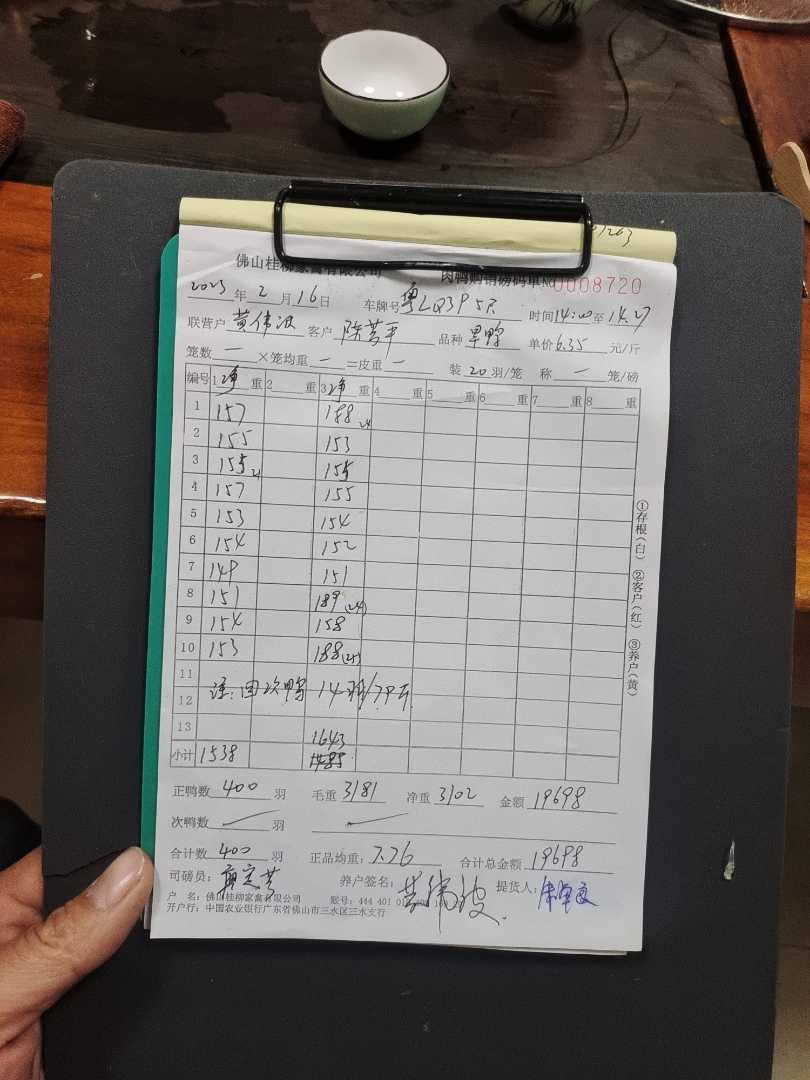 1263
佛山桂柳家禽有限公司 肉鸭购销磅码单 № 0008720
2023年2月16日 车牌号 粤LQ3P5R 时间14:00至14:27
联营户 黄伟波 客户 陈 平 品种 旱鸭 单价6.35元/斤
笼数 ×笼均重 一 =皮重 一 装20羽/笼 称 一 笼/磅
编号 1净重 2 重 3净重 4 重 5 重 6 重 7 重 8 重
1 157 188 24
2 155 153
3 155 21 155
4 157 155
5 153 154
6 154 152
7 149 151
8 151 189 (24)
9 154 158
10 153 188 (25)
11
12 注:回次鸭 14羽/79斤
13 1643
小计 1538 1485
正鸭数 400 羽 毛重 3181 净重 3102 金额 19698
次鸭数 羽
合计数 400 羽 正品均重: 7.76 合计总金额 19698
司磅员: 养户签名: 黄伟波 提货人:
户 名: 佛山桂柳家禽有限公司 账号: 444 401 01
开户行: 中国农业银行广东省佛山市三水区三水支行
①存根(白) ②客户(红) ③养户(黄)